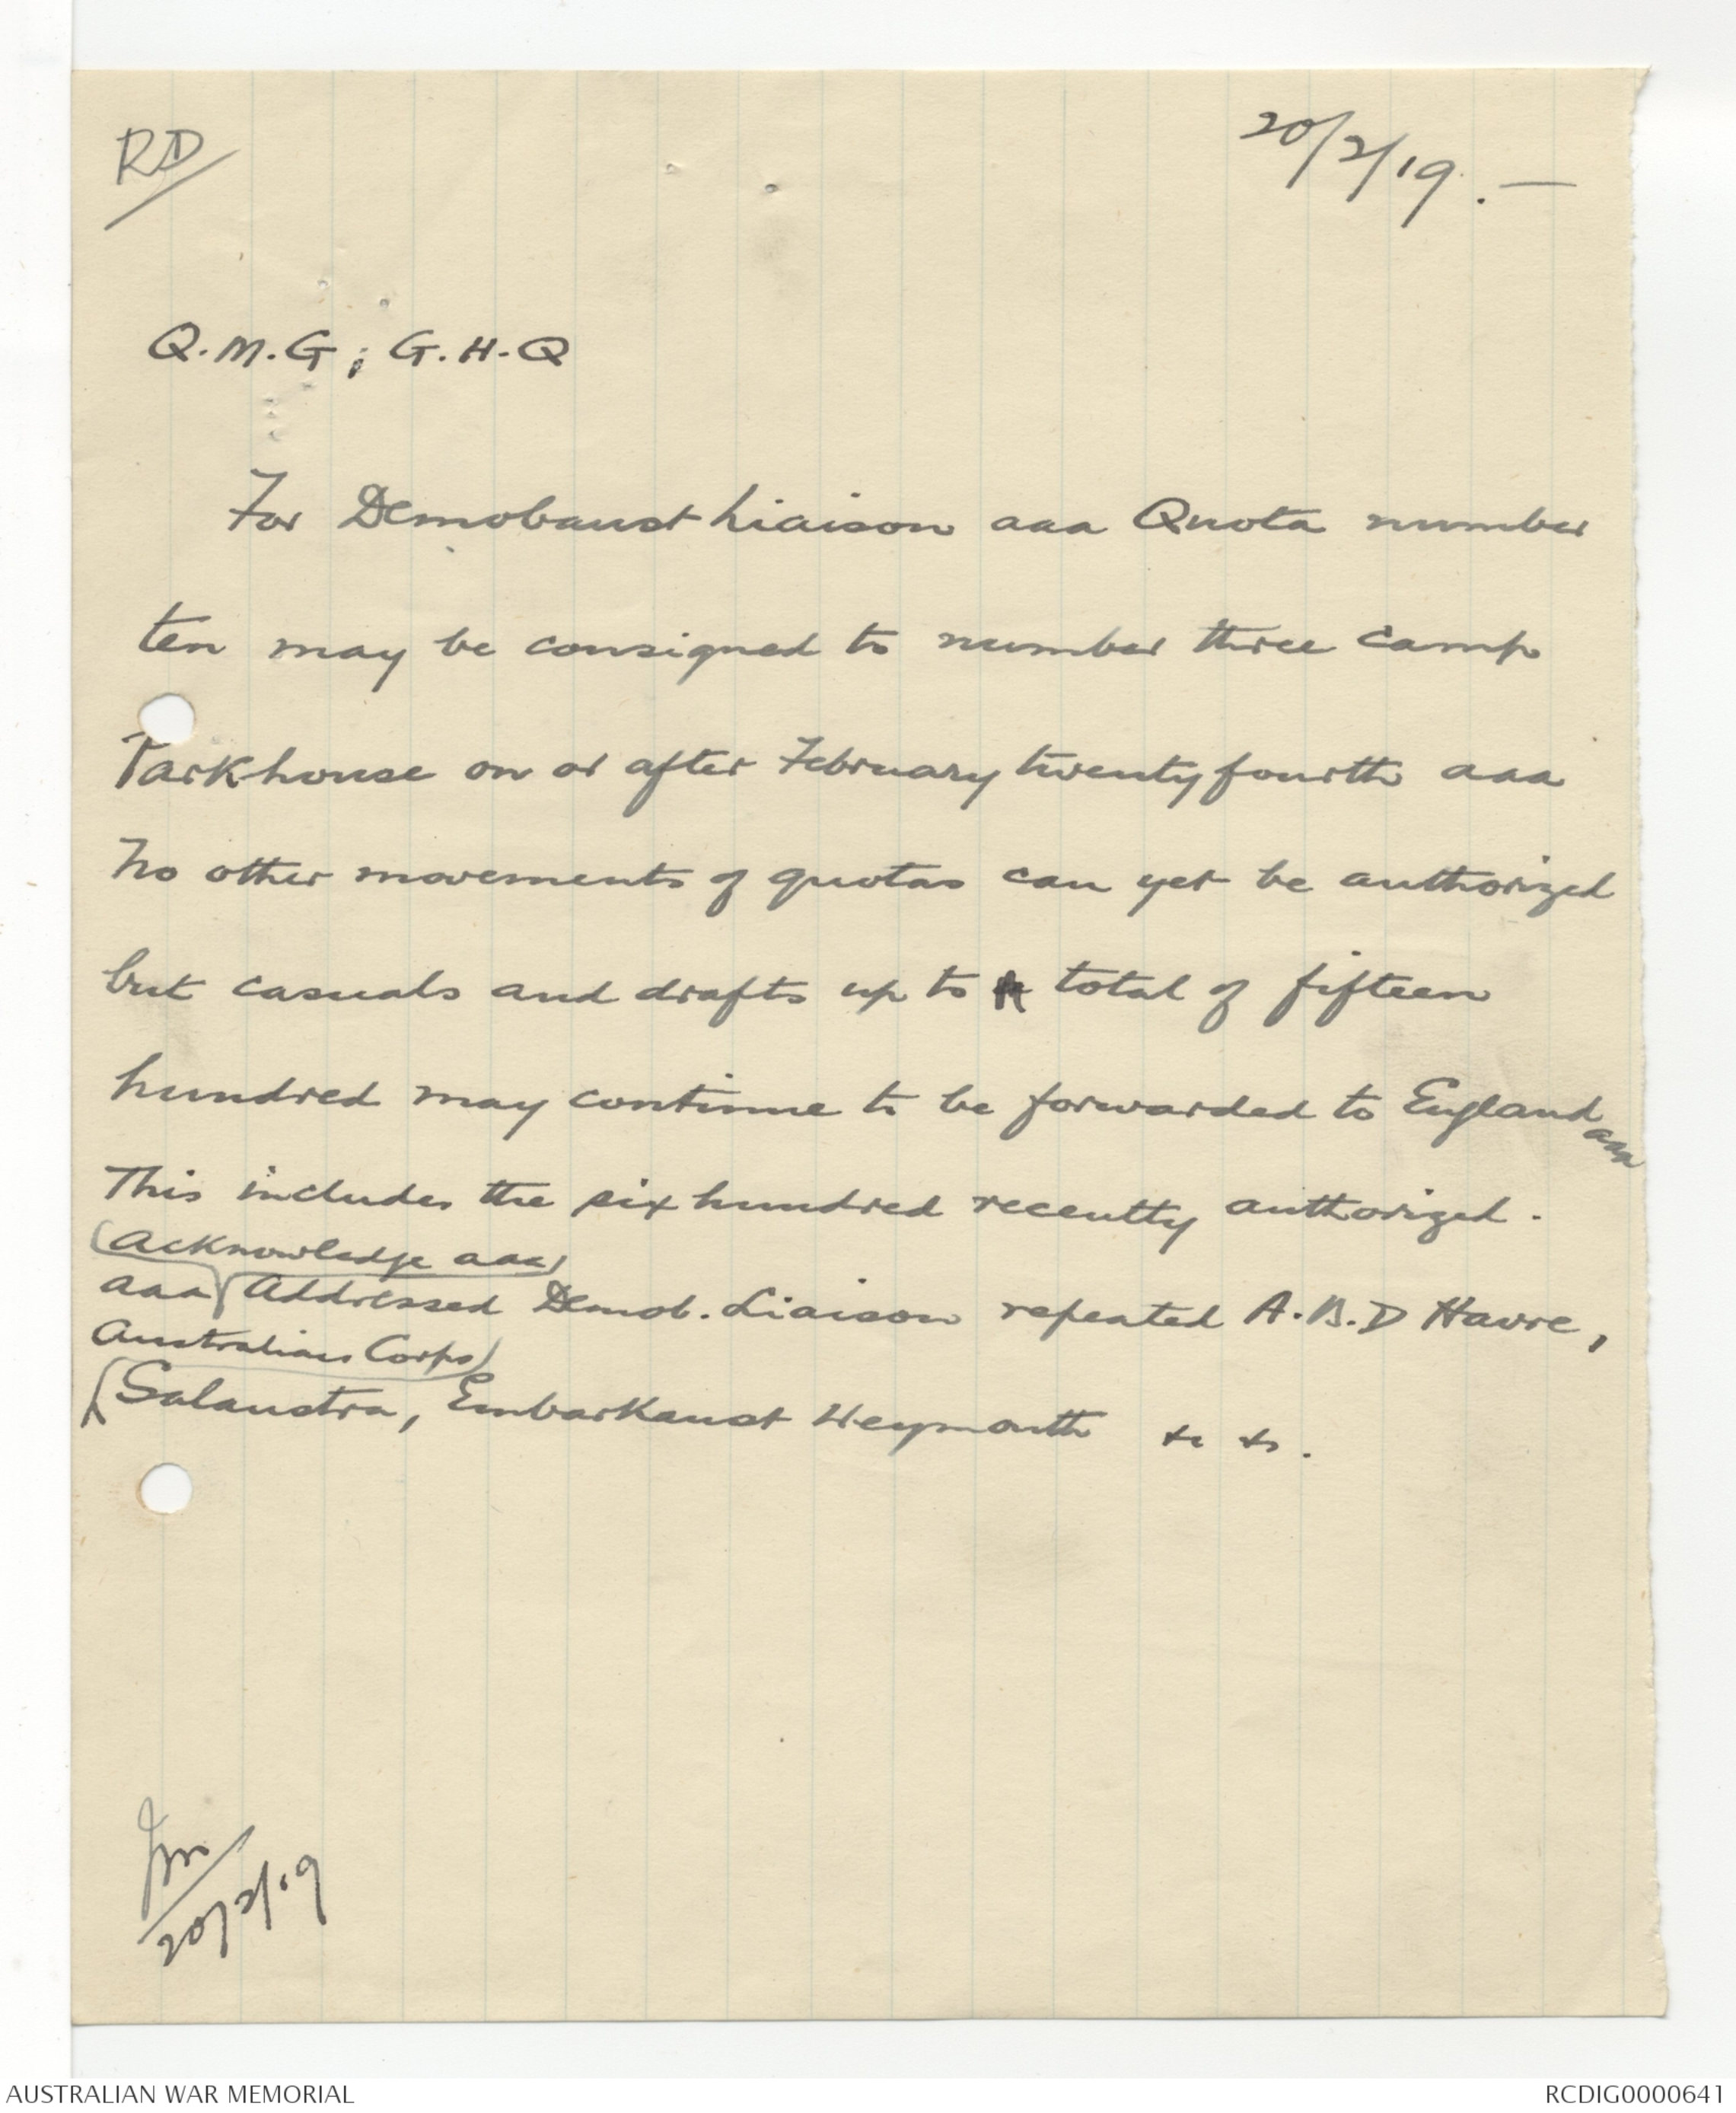 RD
20/2/19.—
Q.M.G; G.H.Q
For Demobaust Liaison aaa Quota number
ten may be consigned to number three camp
Parkhouse on or after February twentyfourth aaa
No other movements of quotas can yet be authorized
but casuals and drafts up to a total of fifteen
hundred may continue to be forwarded to England aaa
This includes the six hundred recently authorized.
(Acknowledge aaa)
aaa Addressed Demob. Liaison repeated A.B.D Havre,
Australian Corps)
(Salaustra, Embarkaust Weymouth
JM
20/2/19
AUSTRALIAN WAR MEMORIAL
RCDIG0000641